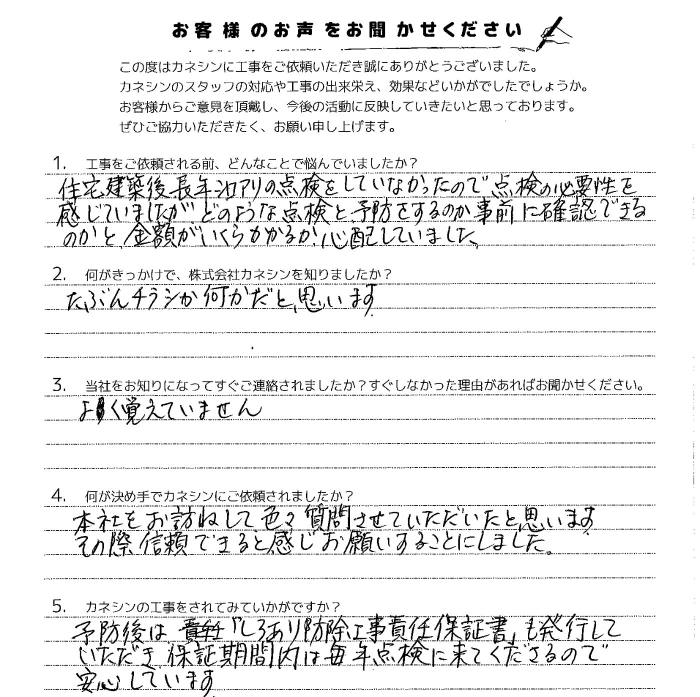 お客様のお声をお聞かせください
この度はカネシンに工事をご依頼いただき誠にありがとうございました。
カネシンのスタッフの対応や工事の出来栄え、効果などいかがでしたでしょうか。
お客様からご意見を頂戴し、今後の活動に反映していきたいと思っております。
ぜひご協力いただきたく、お願い申し上げます。
1. 工事をご依頼される前、どんなことで悩んでいましたか？
住宅建築後長年シロアリの点検をしていなかったので点検の必要性を
感じていましたが どのような点検と予防をするのか事前に確認できる
のかと、金額がいくらかかるか心配していました。
2. 何がきっかけで、株式会社カネシンを知りましたか？
たぶんチラシか何かだと思います
3. 当社をお知りになってすぐご連絡されましたか？すぐしなかった理由があればお聞かせください。
よく覚えていません
4. 何が決め手でカネシンにご依頼されましたか？
本社をお訪ねして色々質問させていただいたと思います
その際信頼できると感じお願いすることにしました。
5. カネシンの工事をされてみていかがですか？
予防後は 貴社「しろあり防除工事責任保証書」も発行して
いただき 保証期間内は毎年点検に来てくださるので
安心しています